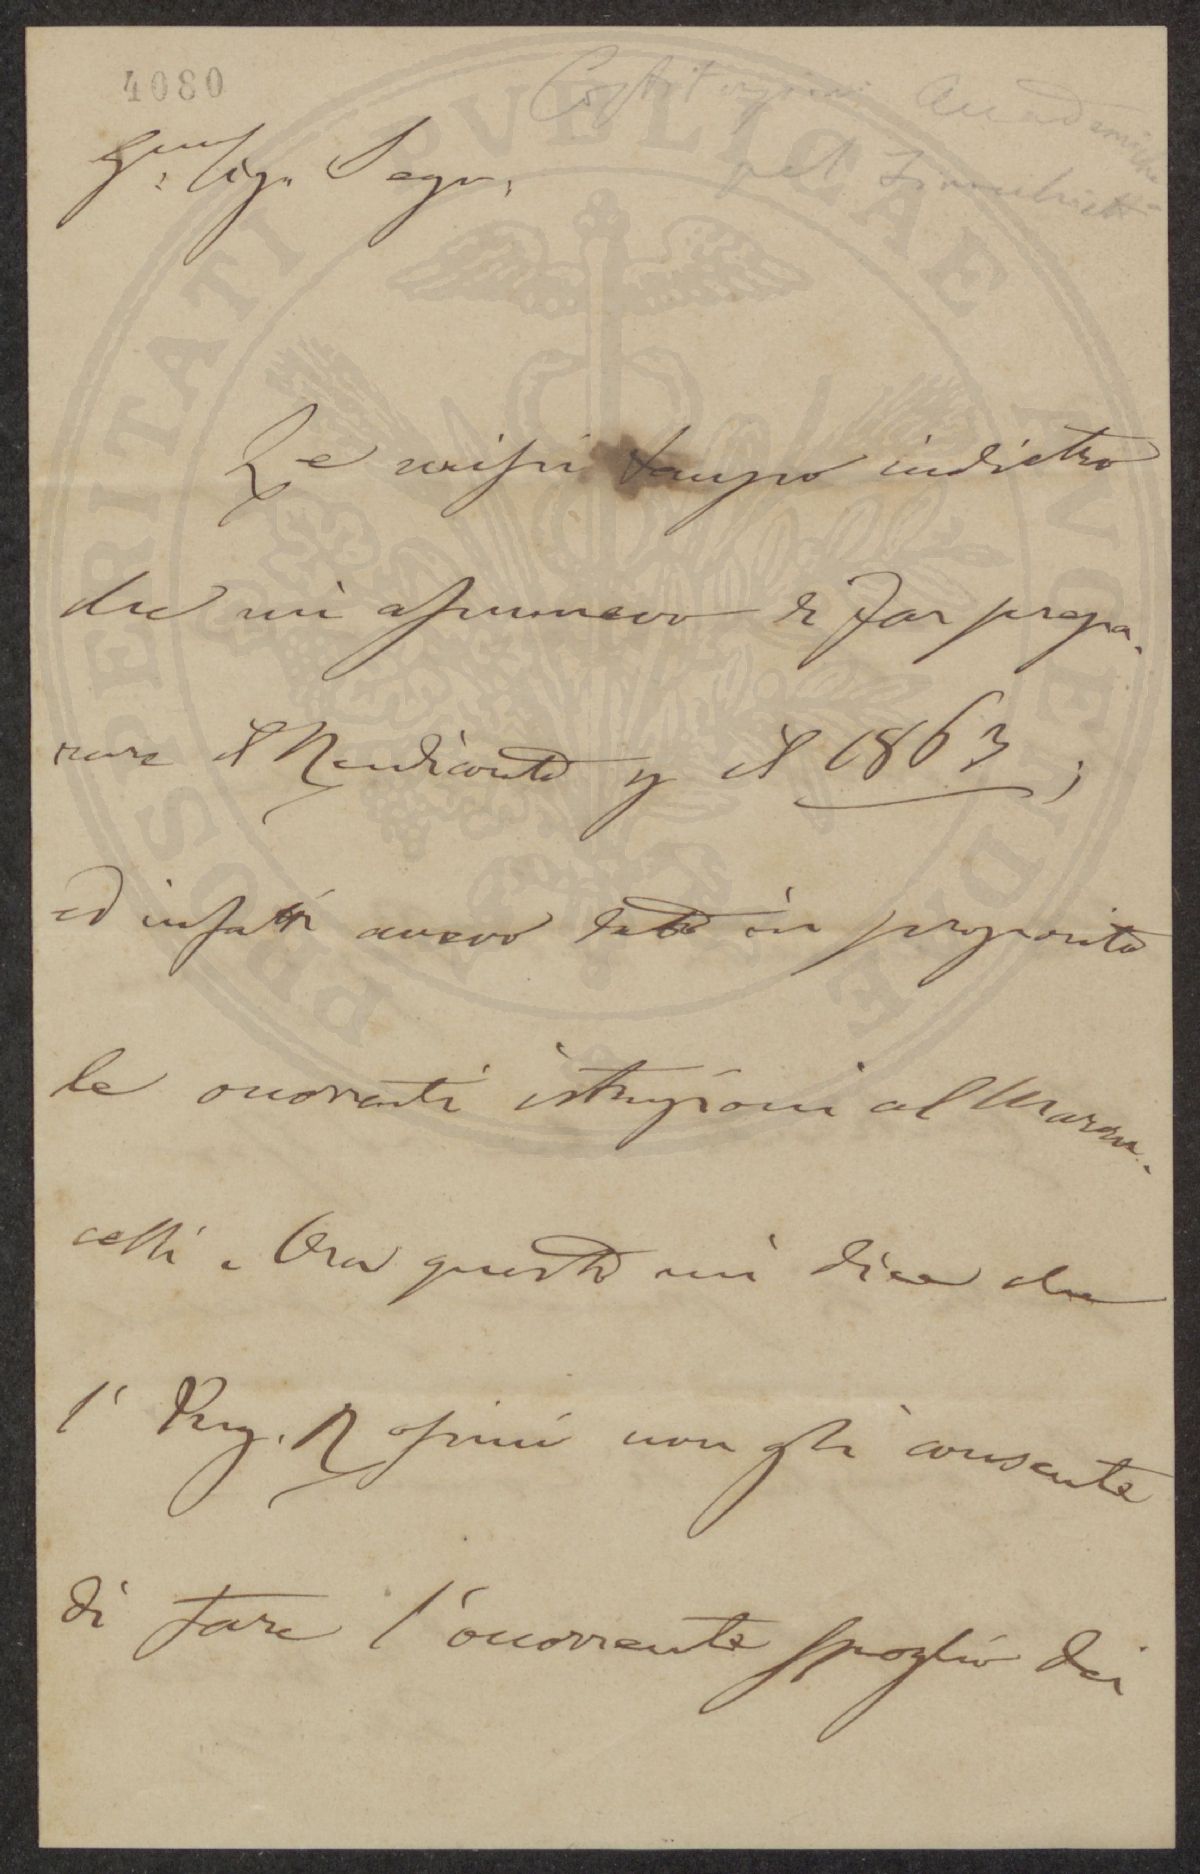 4080
Costituzioni Accademiche
pel
Gmo Sig. Segr.
Le scrissi tempo indietro
che mi assumevo di far prepa-
rare il Rendiconto p il 1863;
ed infatti avevo dato in proposito
le occorrenti istruzioni al Maron-
celli. Ora questo mi dice che
l' Ing. Rossini non gli consente
di fare l'occorrente spoglio dei
PROSPERITATI PVBLICAE AVGENDAE